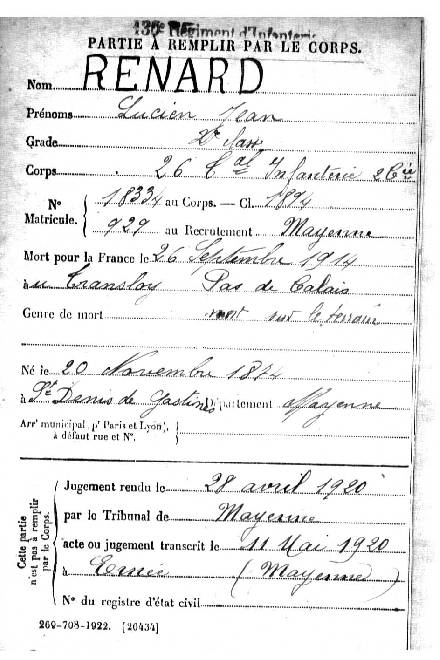 136e Régiment d'Infanterie
PARTIE À REMPLIR PAR LE CORPS.
Nom RENARD
Prénoms Lucien Jean
Grade 2e
Corps 26 Infanterie 2 Cie
N° Matricule. { 18334 au Corps. — Cl. 1894
929 au Recrutement Mayenne
Mort pour la France le 26 Septembre 1914
à Transloy Pas de Calais
Genre de mort mort sur le terrain
Né le 20 Novembre 1874
à St Denis de Gastines Département Mayenne
Arrt municipal (pr Paris et Lyon),
à défaut rue et N°.
Cette partie n'est pas à remplir par le Corps.
Jugement rendu le 28 avril 1920
par le Tribunal de Mayenne
acte ou jugement transcrit le 11 Mai 1920
à Ernée (Mayenne)
N° du registre d'état civil
269-708-1922. [26434]